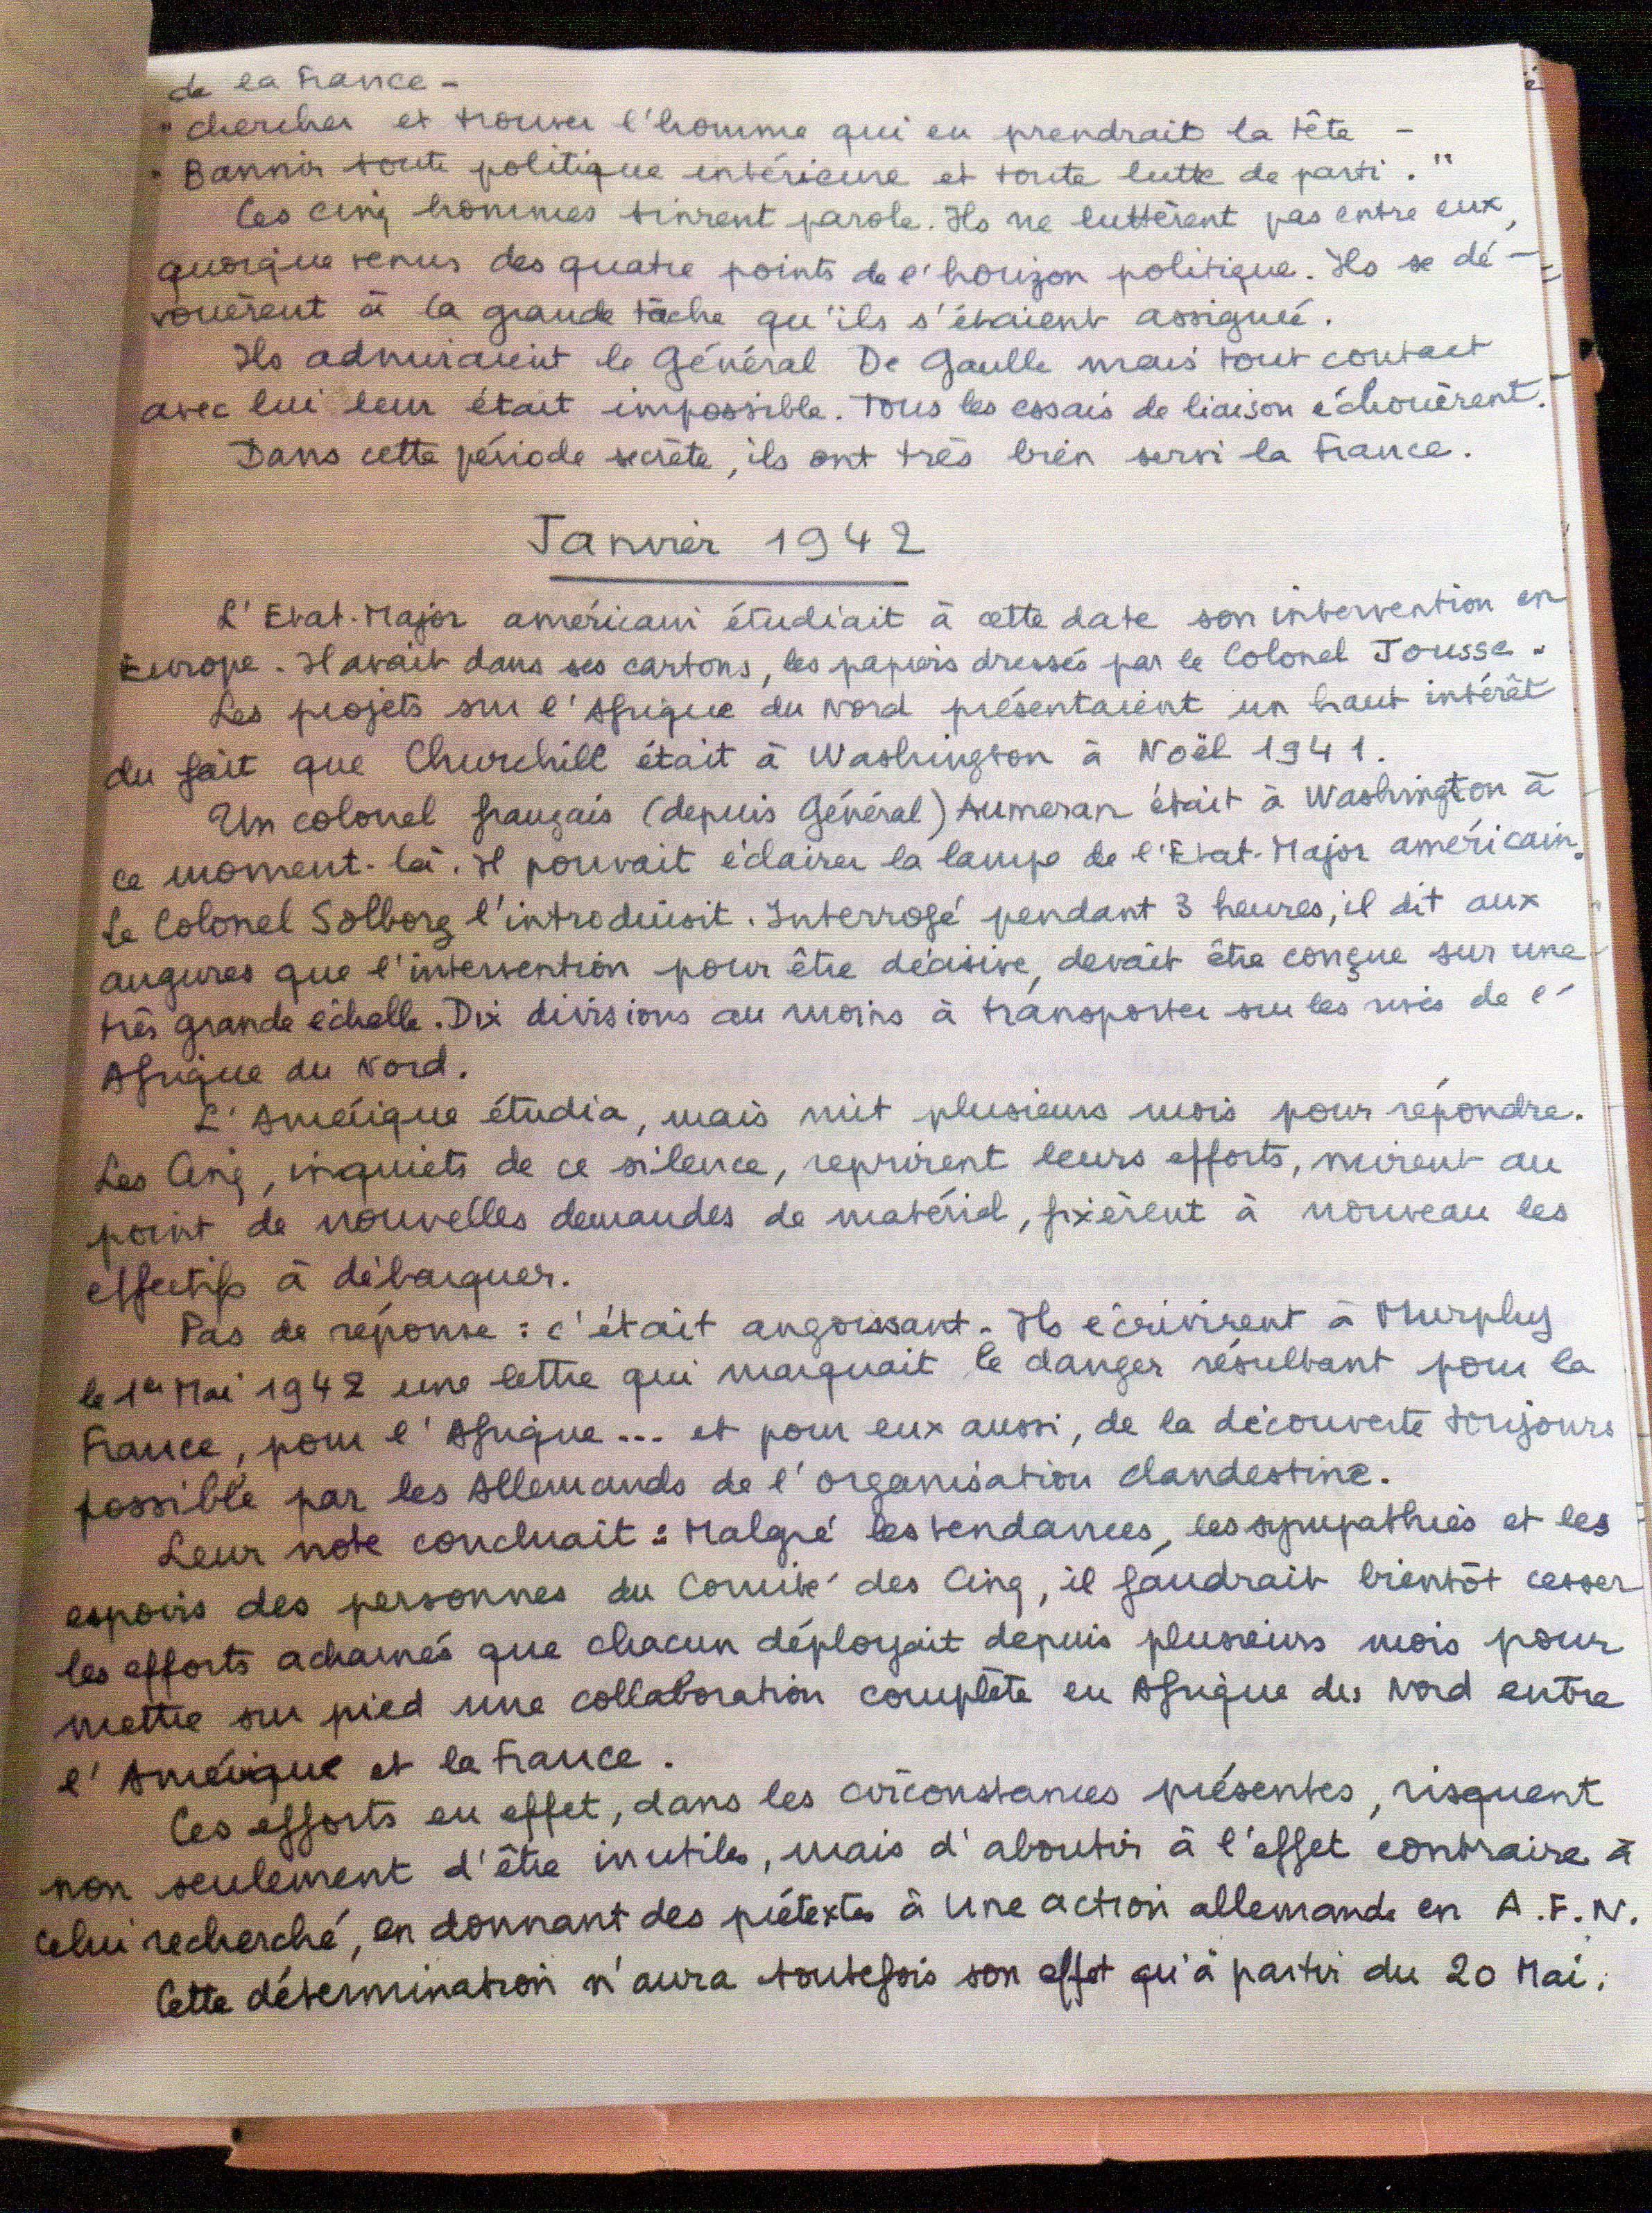 de la France -
" chercher et trouver l'homme qui en prendrait la tête -
" Bannir toute politique intérieure et toute lutte de parti . "
Ces cinq hommes tinrent parole. Ils ne luttèrent pas entre eux,
quoique venus des quatre points de l'horizon politique. Ils se dé-
vouèrent à la grande tâche qu'ils s'étaient assigné.
Ils admiraient le Général De Gaulle mais tout contact
avec lui leur était impossible. Tous les essais de liaison échouèrent.
Dans cette période secrète, ils ont très bien servi la France.
Janvier 1942
L'Etat-Major américain étudiait à cette date son intervention en
Europe. Il avait dans ses cartons, les papiers dressés par le Colonel Jousse.
Les projets sur l'Afrique du Nord présentaient un haut intérêt
du fait que Churchill était à Washington à Noël 1941.
Un colonel français (depuis Général) Aumeran était à Washington à
ce moment-là. Il pouvait éclairer la lampe de l'Etat-Major américain.
Le Colonel Solborg l'introduisit. Interrogé pendant 3 heures, il dit aux
augures que l'intervention pour être décisive, devait être conçue sur une
très grande échelle. Dix divisions au moins à transporter sur les rives de l'
Afrique du Nord.
L'Amérique étudia, mais mit plusieurs mois pour répondre.
Les Cinq, inquiets de ce silence, reprirent leurs efforts, mirent au
point de nouvelles demandes de matériel, fixèrent à nouveau les
effectifs à débarquer.
Pas de réponse : c'était angoissant. Ils écrivirent à Murphy
le 1er Mai 1942 une lettre qui marquait le danger résultant pour la
France, pour l'Afrique... et pour eux aussi, de la découverte toujours
possible par les Allemands de l'organisation clandestine.
Leur note concluait : Malgré les tendances, les sympathies et les
espoirs des personnes du Comité des Cinq, il faudrait bientôt cesser
les efforts acharnés que chacun déployait depuis plusieurs mois pour
mettre sur pied une collaboration complète en Afrique du Nord entre
l'Amérique et la France.
Ces efforts en effet, dans les circonstances présentes, risquent
non seulement d'être inutiles, mais d'aboutir à l'effet contraire à
celui recherché, en donnant des prétextes à une action allemande en A.F.N.
Cette détermination n'aura toutefois son effet qu'à partir du 20 Mai.